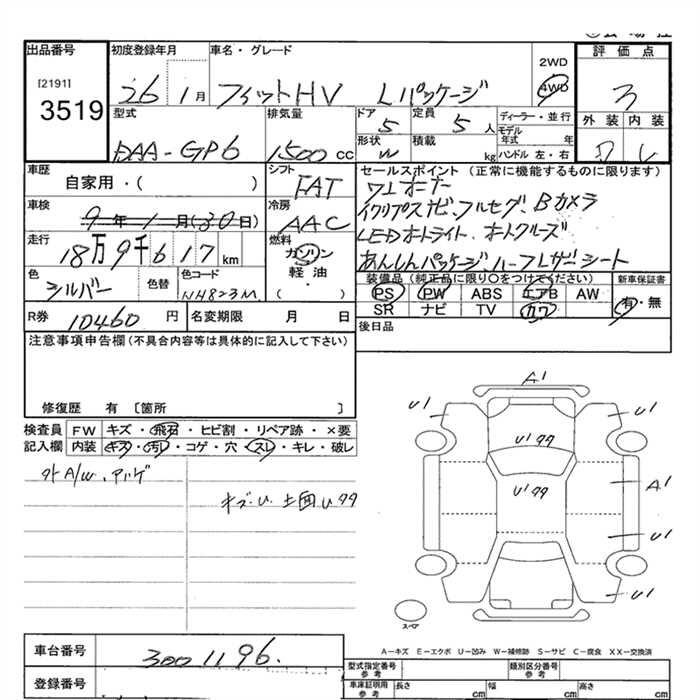 出品番号 初度登録年月 車名・グレード 評価点
[2191] 3519 26 1月 フィットHV Lパッケージ 2WD 4WD 3
型式 排気量 ドア 定員 ディーラー・並行 外装 内装
DAA-GP6 1500CC 5 5人 モデル年式 年
形状 W 積載 kg ハンドル 左・右
車歴 シフト セールスポイント (正常に機能するものに限ります)
自家用・( ) FAT ワンオーナー
車検 冷房 インタナビ、フルセグ、Bカメラ
9年1月(30日) AAC LEDオートライト、オートクルーズ
走行 18万9千617km 燃料 ガソリン・軽油・( ) あんしんパッケージ ハーフLサビシート
色 シルバー 色替 色コード NH823M
装備品 (純正品に限り○をつけてください) 新車保証書
PS PW ABS エアB AW 有・無
SR ナビ TV カワ
R券 10460円 名変期限 月 日 後日品
注意事項申告欄(不具合内容等は具体的に記入して下さい)
修復歴 有 〔箇所 〕
検査員 FW キズ・飛石・ヒビ割・リペア跡・×要
記入欄 内装 キズ・汚レ・コゲ・穴・スレ・キレ・破レ
外A/W、アゲ
キズ・U 土回Uタタ
A1
U1 U1
U1タタ
U1タタ
A1
U1
U1
スペア
A-キズ E-エクボ U-凹み W-補修跡 S-サビ C-腐食 XX-交換済
車台番号 3001196.
登録番号
型式指定番号 参考 類別区分番号 参考
車庫証明用 参考 長さ cm 幅 cm 高さ cm